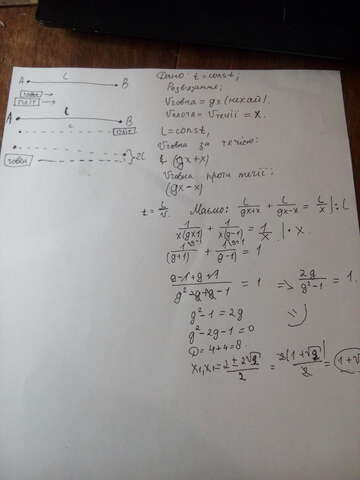 A L B
човен →
пліт →
A L B
пліт
човен
} 2L
Дано: t = const;
Розвязання:
Vчовна = gx (нехай)
Vплота = Vтечії = x.
L = const,
Vчовна за течією:
(gx+x)
Vчовна проти течії:
(gx-x)
t = L/V. Маємо: L/(gx+x) + L/(gx-x) = L/x |: L
1/(x(g+1)) + 1/(x(g-1)) = 1/x | · x.
1/(g+1) + 1/(g-1) = 1
(g-1+g+1)/(g²-g+g-1) = 1 => 2g/(g²-1) = 1.
g²-1 = 2g
g²-2g-1=0
D = 4+4=8
x₁,x₂ = (2±2√2)/2 = 2(1+√2)/2 = 1+√